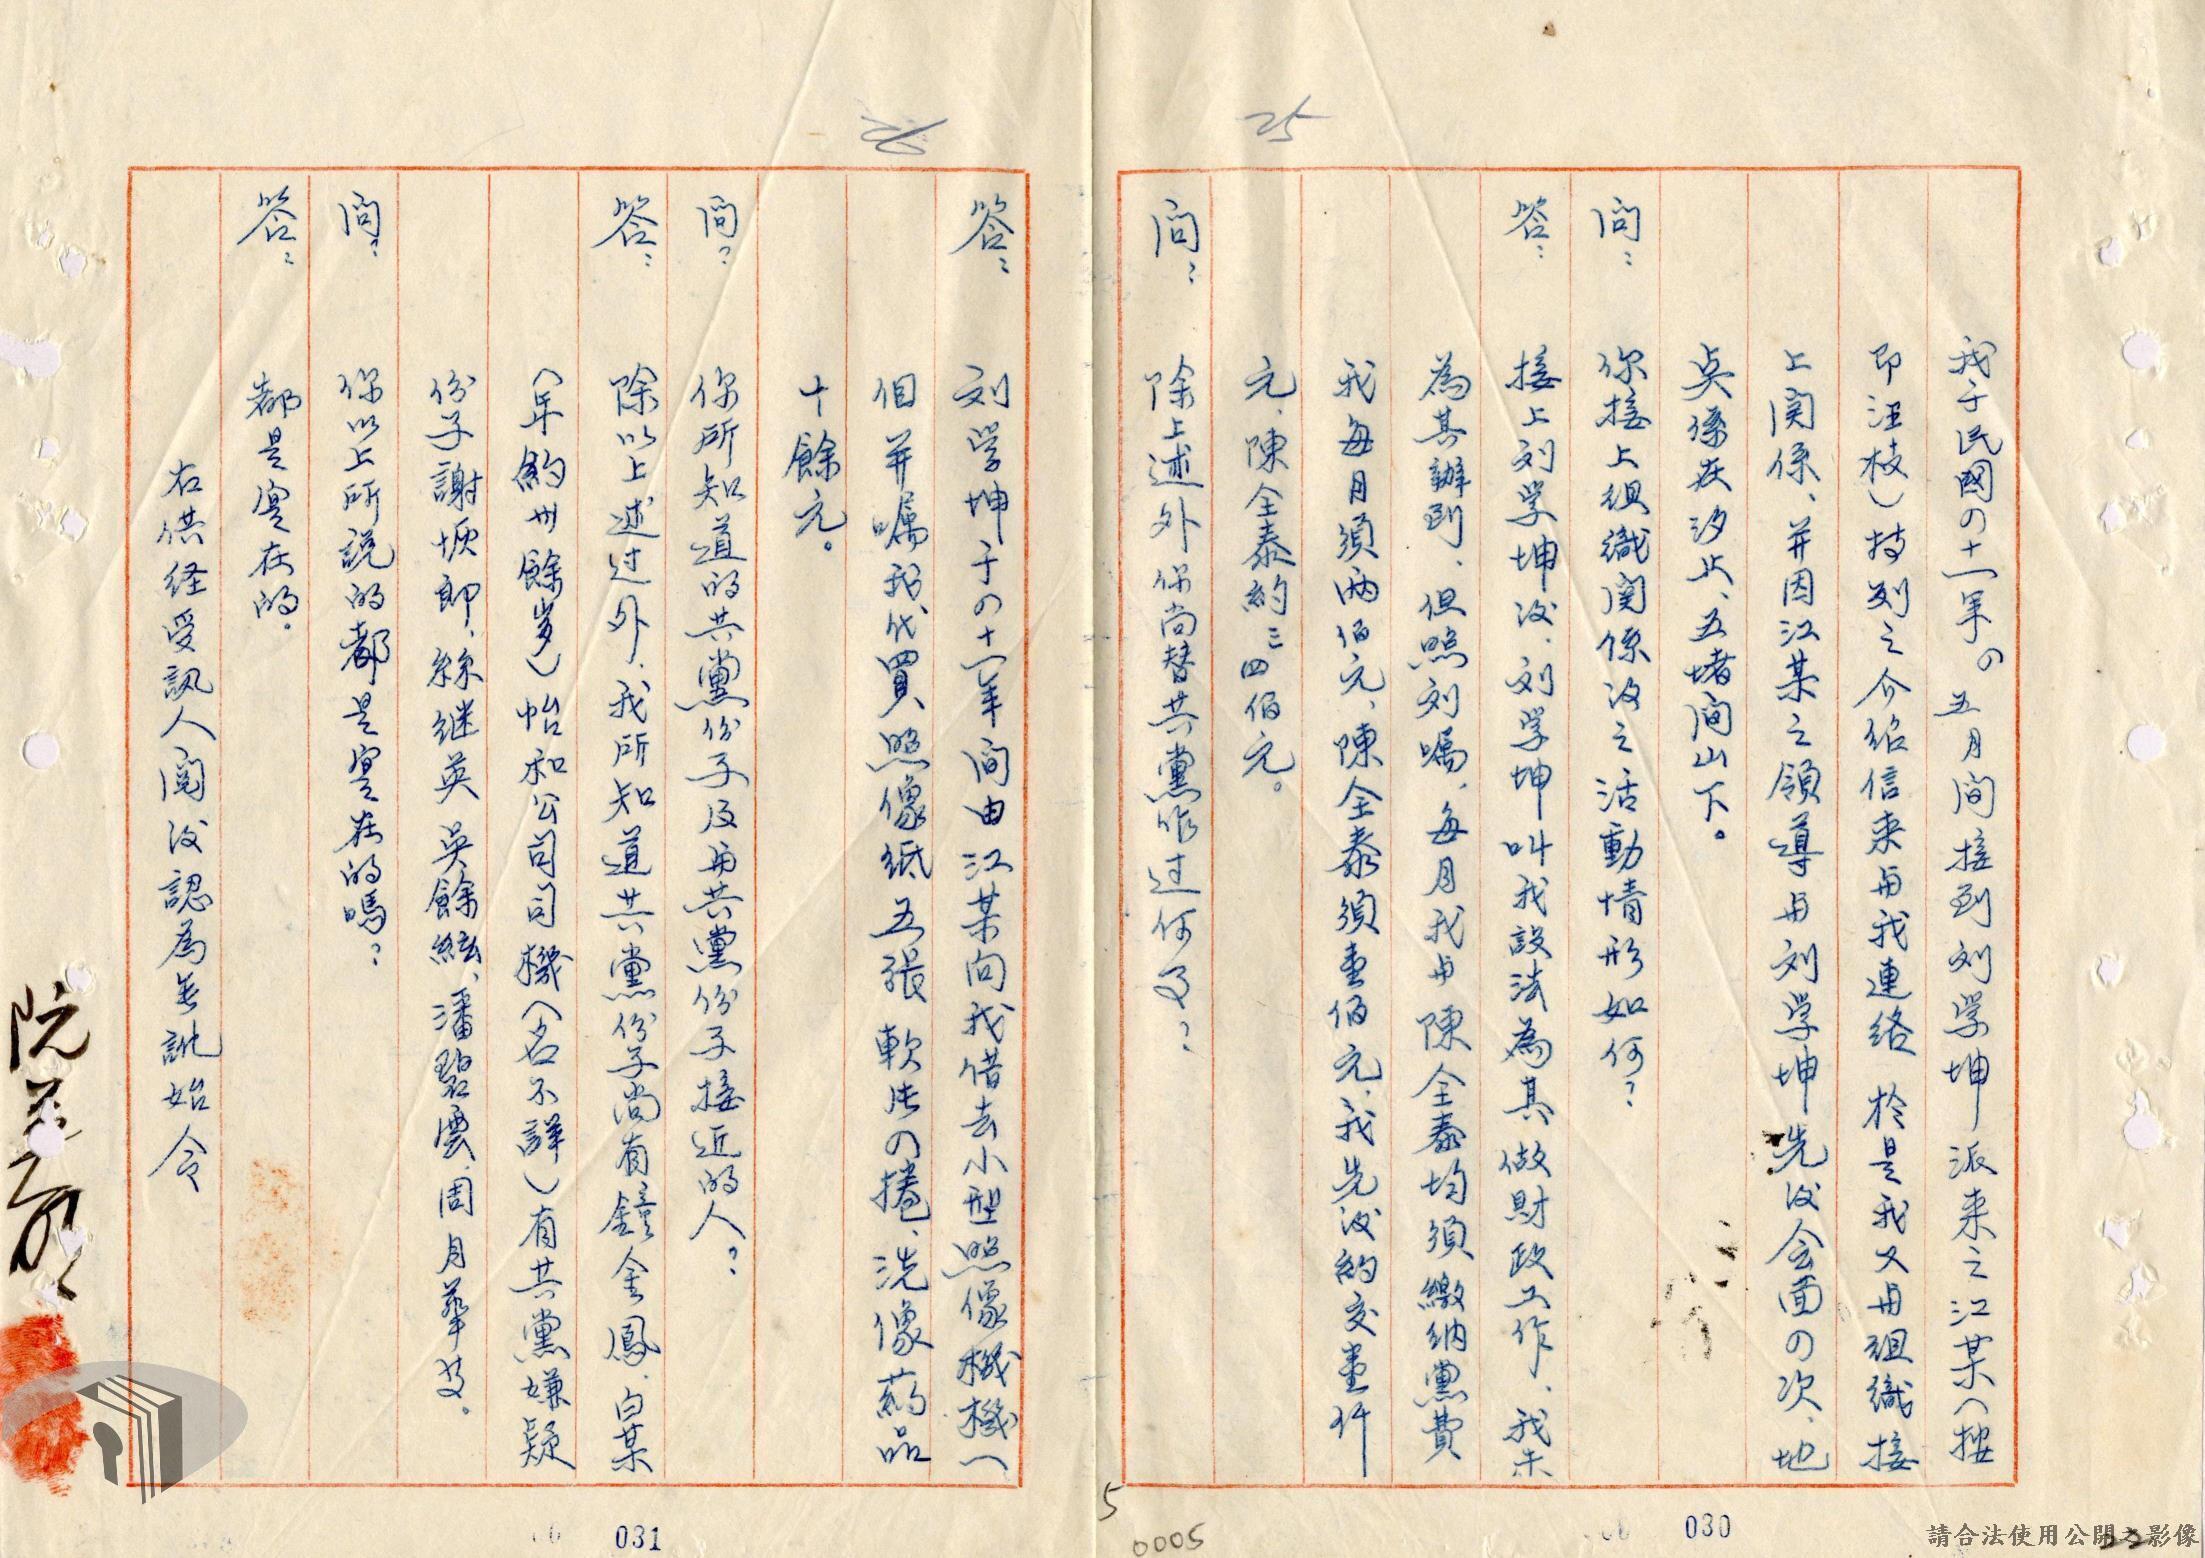 25
我于民國四十一年四、五月間接到刘学坤派来之江某（按
即汪枝）持刘之介绍信来与我連络 於是我又与组織接
上関係、并因江某之領導与刘学坤先後会面四次、地
点係在汐止、五堵间山下。
问： 你接上组織関係後之活動情形如何？
答： 接上刘学坤後、刘学坤叫我設法為其做財政工作、我未
為其辦到、但照刘嘱、每月我与陳全泰均須繳纳黨費
我每月須两佰元、陳全泰須壹佰元、我先後約交壹仟
元、陳全泰約三四佰元。
问： 除上述外你尚替共黨作过何事？
答： 刘学坤于四十一年间由江某向我借去小型照像機機一
個并嘱我代買照像纸五張 軟片四捲、洗像葯品
十餘元。
问： 你所知道的共黨份子及与共黨份子接近的人？
答： 除以上述过外、我所知道共黨份子尚有鐘金鳳、白某
（年約卅餘岁）怡和公司司機（名不詳）有共黨嫌疑
份子謝 郎、 继英 吳餘 、潘碧雲、周月華等。
问： 你以上所説的都是實在的嗎？
答： 都是實在的。
右供経受訊人閱後認為無訛始令
阮
031
030
5
0005
請合法使用公開之影像